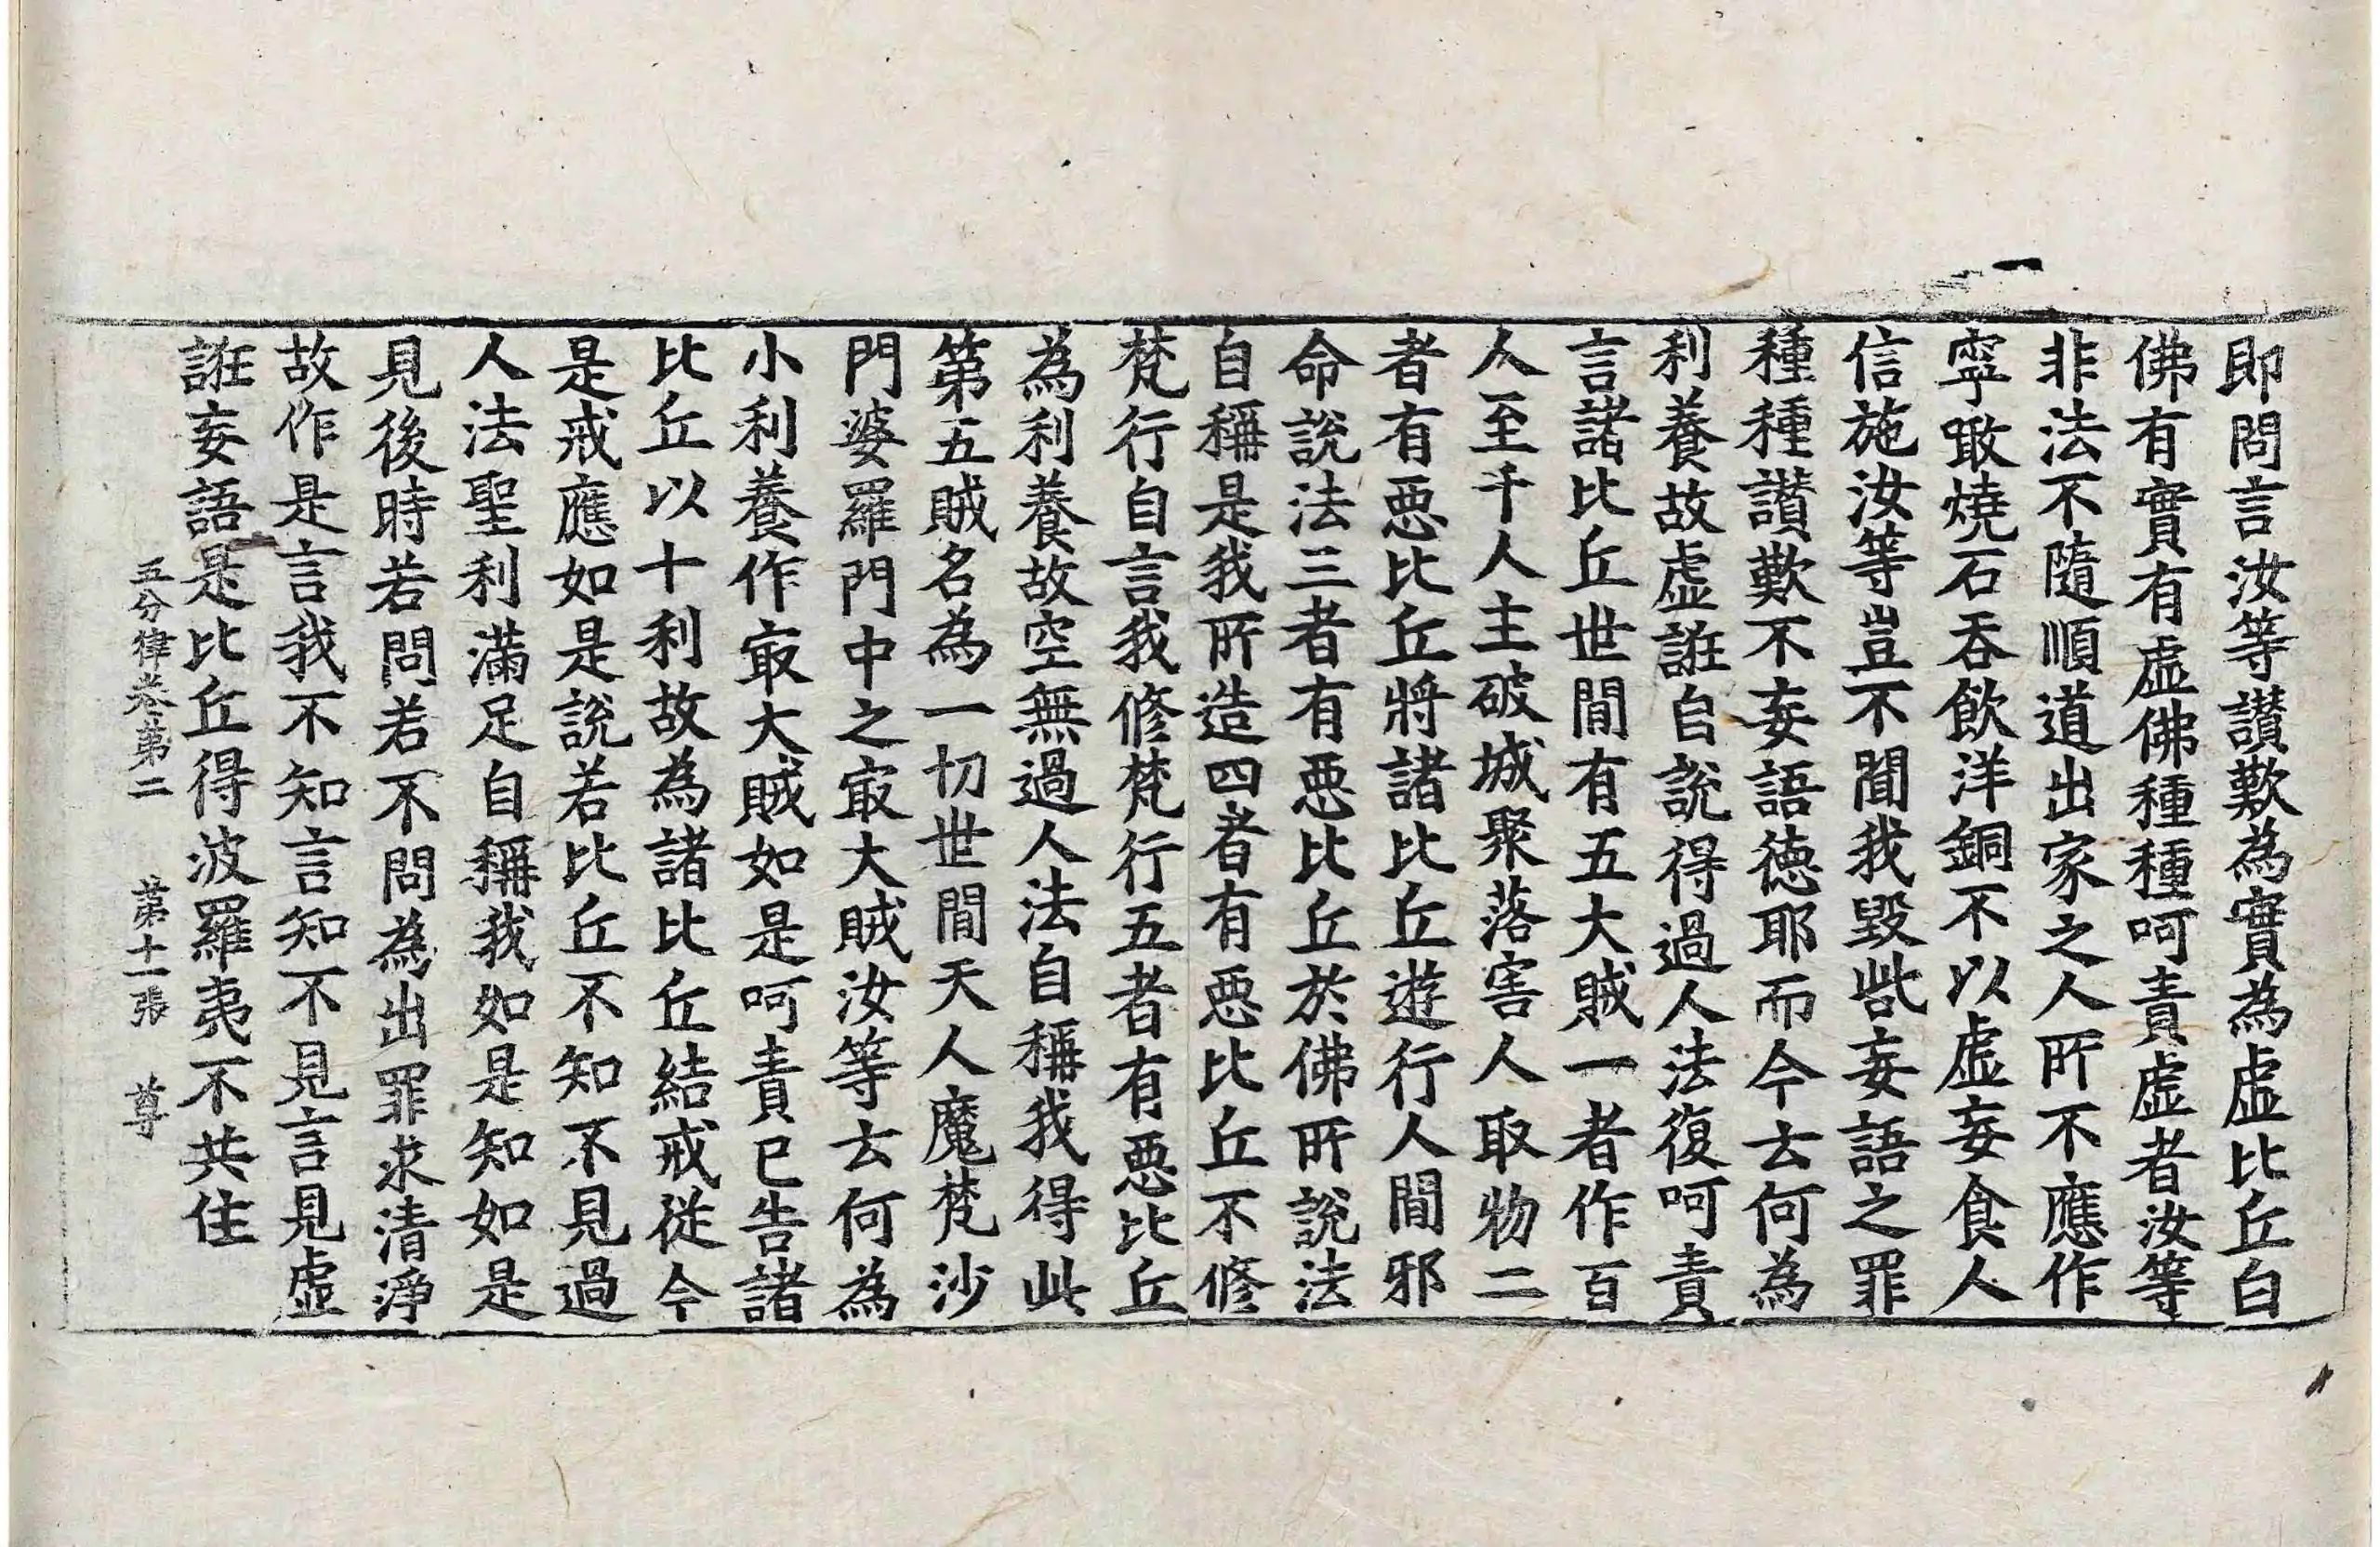 即問言汝等讃歎為實為虛比丘白
佛有實有虛佛種種呵責虛者汝等
非法不隨順道出家之人所不應作
寧噉燒石吞飲洋銅不以虛妄食人
信施汝等豈不聞我毀呰妄語之罪
種種讃歎不妄語德耶而今云何為
利養故虛誑自說得過人法復呵責
言諸比丘世間有五大賊一者作百
人至千人主破城聚落害人取物二
者有惡比丘將諸比丘遊行人間邪
命說法三者有惡比丘於佛所說法
自稱是我所造四者有惡比丘不修
梵行自言我修梵行五者有惡比丘
為利養故空無過人法自稱我得此
第五賊名為一切世間天人魔梵沙
門婆羅門中之㝡大賊汝等云何為
小利養作㝡大賊如是呵責已告諸
比丘以十利故為諸比丘結戒從今
是戒應如是說若比丘不知不見過
人法聖利滿足自稱我如是知如是
見後時若問若不問為出罪求清淨
故作是言我不知言知不見言見虛
誑妄語是比丘得波羅夷不共住
五分律卷第二　第十一張　尊